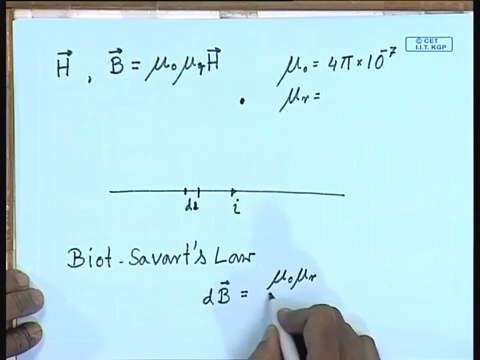 © CET
I.I.T. KGP
H⃗ , B⃗ = μ₀μᵣH⃗
μ₀ = 4π×10⁻⁷
μᵣ =
dl i
Biot-Savart's Law
dB⃗ = μ₀μᵣ